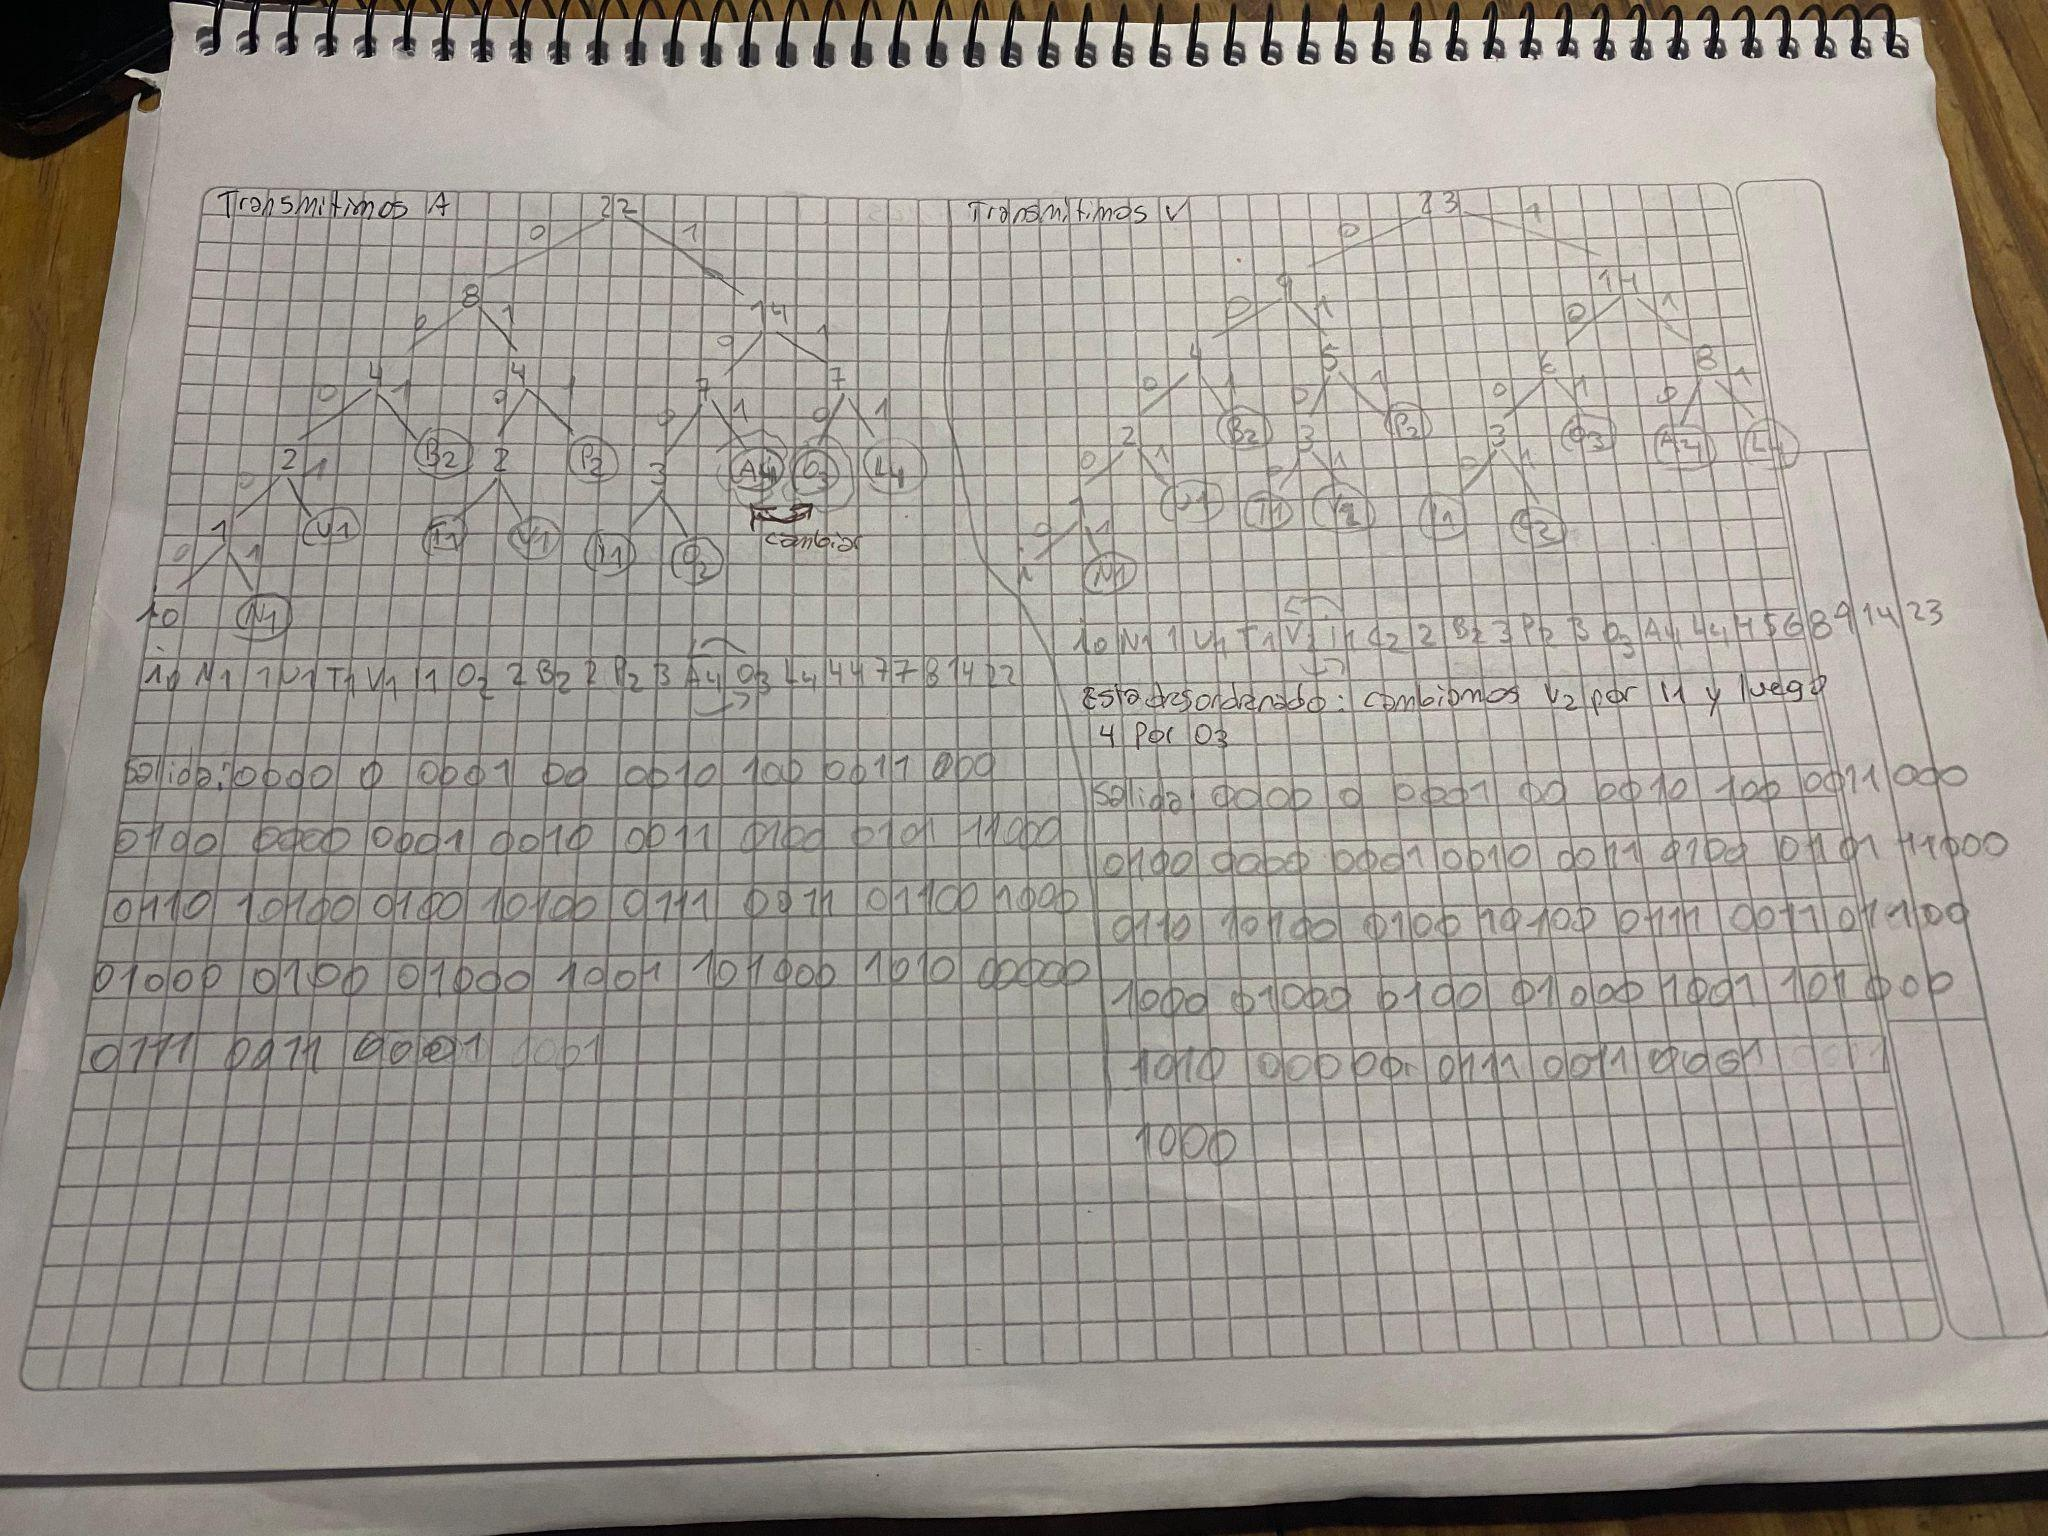 Transmitimos A
22
0 1
8 14
0 1 0 1
4 4 7 7
0 1 0 1 0 1 0 1
2 B2 2 P2 3 A4 O3 L4
0 1
1 U1 T1 V1 I1 O2
cambiar
0 1
10 N1
10 N1 1 U1 T1 V1 I1 O2 2 B2 2 P2 3 A4 O3 L4 4 4 7 7 8 14 22
Salida: 0000 0 0001 00 0010 100 0011 000
0100 0000 0001 0010 0011 0100 0101 11000
0110 10100 0100 10100 0111 0011 01100 1000
01000 0100 01000 1001 101000 1010 00000
0111 0011 0001 1001
Transmitimos V
23
0 1
9 14
0 1 0 1
4 5 6 8
0 1 0 1 0 1 0 1
2 B2 3 P2 3 O3 A4 L4
0 1 0 1 0 1
1 U1 T1 V2 I1 2
0 1
N1
10 N1 1 U1 T1 V2 I1 2 2 B2 3 P2 3 O3 A4 L4 4 5 6 8 9 14 23
Esta desordenado: cambiamos V2 por I1 y luego
4 por O3
Salida: 0000 0 0001 00 0010 100 0011 000
0100 0000 0001 0010 0011 0100 0101 11000
0110 10100 0100 10100 0111 0011 01100
1000 01000 0100 01000 1001 101000
1010 00000 0111 0011 0001
1000